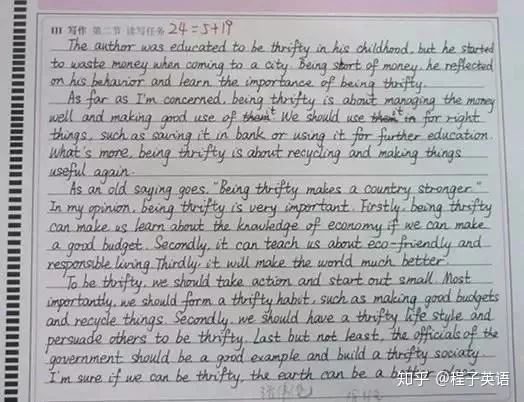 III 写作 第二节 读写任务 24=5+19
The author was educated to be thrifty in his childhood, but he started
to waste money when coming to a city. Being short of money, he reflected
on his behavior and learn the importance of being thrifty.
As far as I'm concerned, being thrifty is about managing the money
well and making good use of it. We should use it for right
things, such as saving it in bank or using it for further education.
What's more, being thrifty is about recycling and making things
useful again.
As an old saying goes, "Being thrifty makes a country stronger."
In my opinion, being thrifty is very important. Firstly, being thrifty
can make us learn about the knowledge of economy if we can make
a good budget. Secondly, it can teach us about eco-friendly and
responsible living. Thirdly, it will make the world much better.
To be thrifty, we should take action and start out small. Most
importantly, we should form a thrifty habit, such as making good budgets
and recycle things. Secondly, we should have a thrifty life style and
persuade others to be thrifty. Last but not least, the officials of the
government should be a good example and build a thrifty sociaty.
I'm sure if we can be thrifty, the earth can be a better
知乎 @程子英语